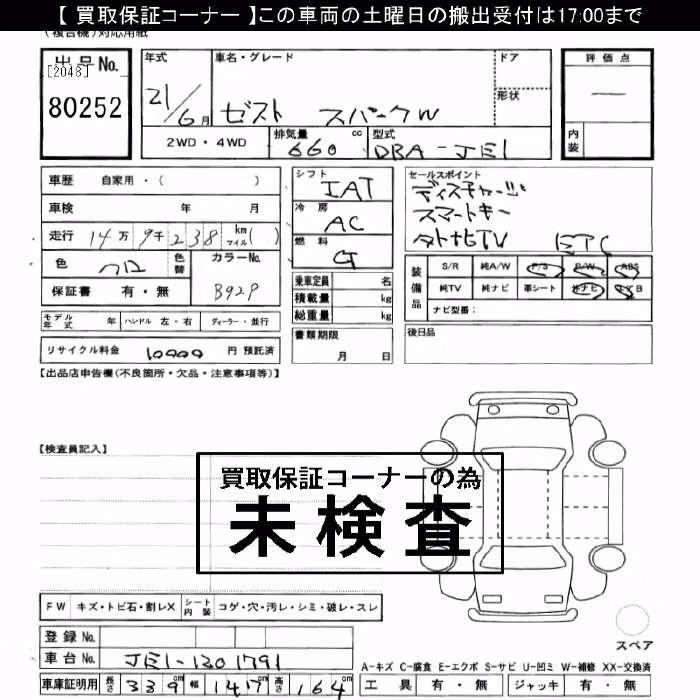 【 買取保証コーナー 】この車両の土曜日の搬出受付は17:00まで
(複合機)対応用紙
出品No.
[2048]
80252
年式
21/6月
車名・グレード
ゼスト スパークW
ドア
形状
評価点
—
内装
2WD・4WD
排気量
660cc
型式
DBA-JE1
車歴 自家用・( )
車検 年 月
走行 14万9千238km マイル( )
色 クロ
色替
カラーNo.
B92P
保証書 有・無
モデル年式 年
ハンドル 左・右
ディーラー・並行
リサイクル料金 10990 円 預託済
シフト
IAT
冷房
AC
燃料
G
乗車定員 名
積載量 kg
総重量 kg
書類期限
月 日
セールスポイント
ディスチャージ
スマートキー
ETC
装備品
S/R 純A/W P/S P/W ABS
純TV 純ナビ 革シート 社ナビ エアB
ナビ型番:
後日品
【出品店申告欄(不良箇所・欠品・注意事項等)】
【検査員記入】
買取保証コーナーの為
未検査
FW キズ・トビ石・割レX
シート内装 コゲ・穴・汚レ・シミ・破レ・スレ
登録No.
車台No. JE1-1301791
車庫証明用 長さ 339cm 幅 147cm 高さ 164cm
スペア
A-キズ C-腐食 E-エクボ S-サビ U-凹ミ W-補修 XX-交換済
工具 有・無 ジャッキ 有・無